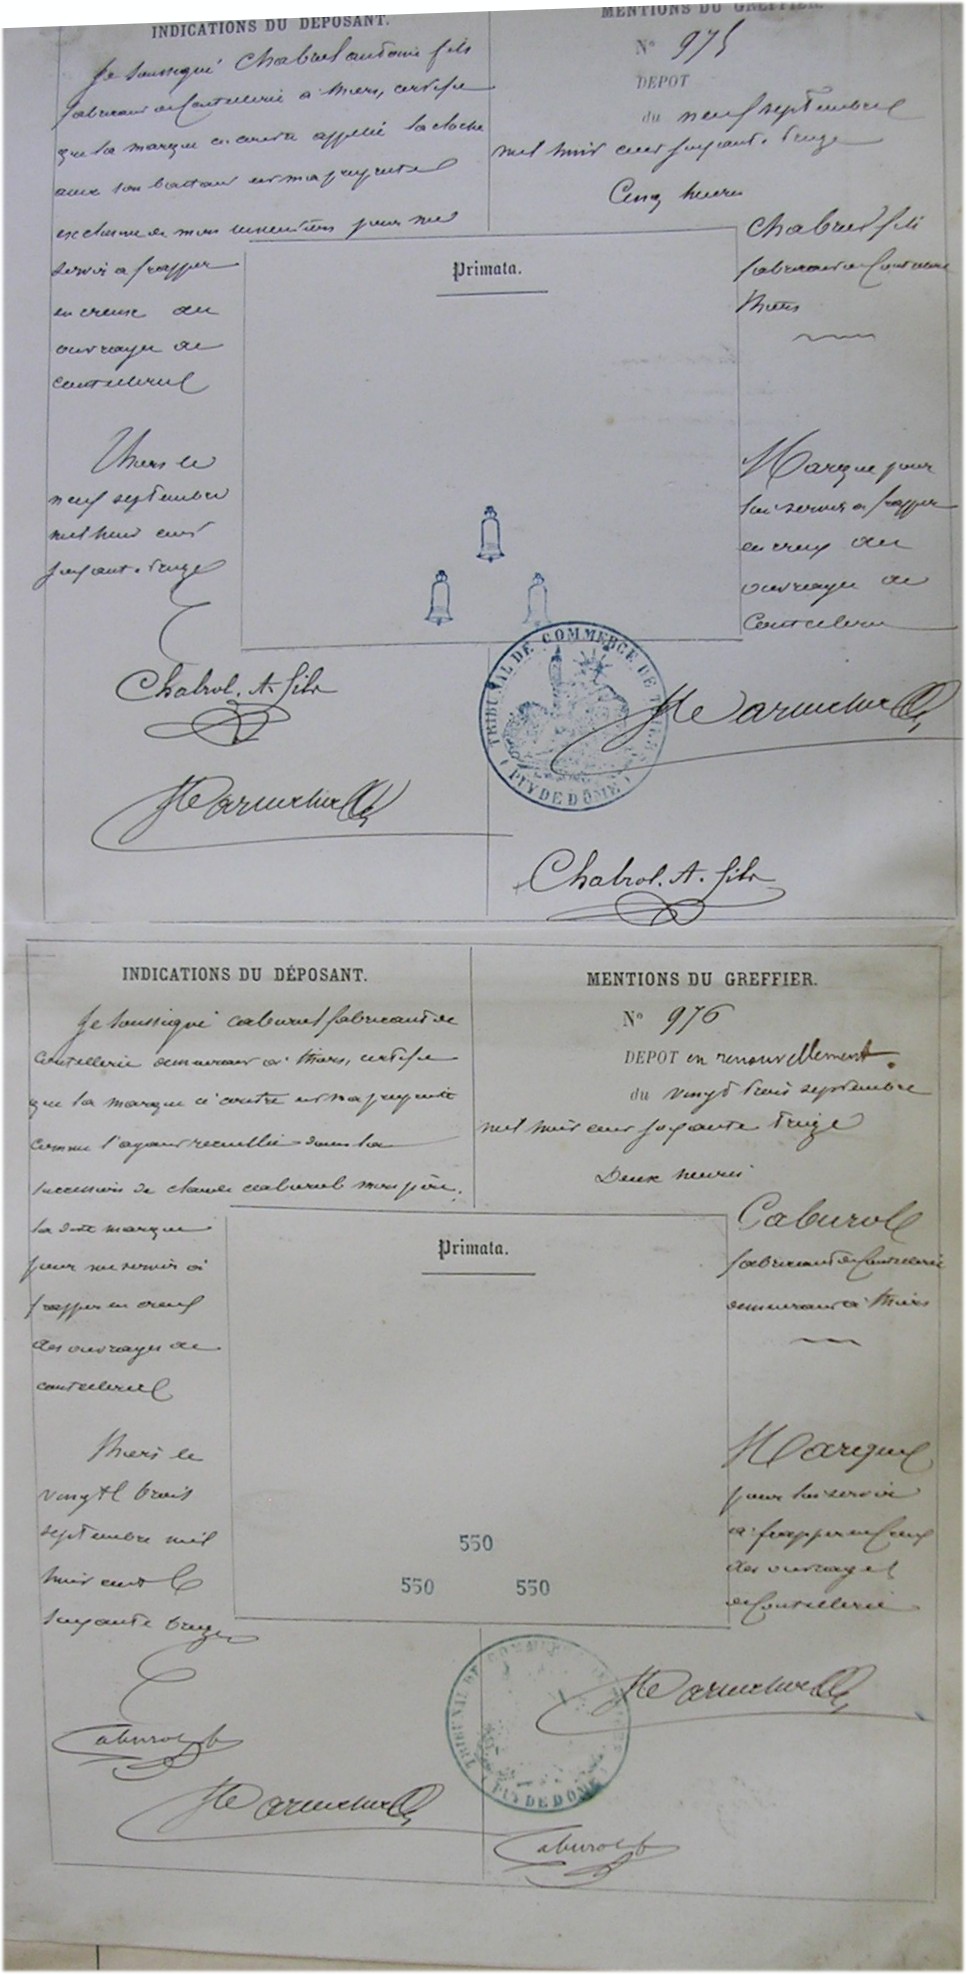 INDICATIONS DU DÉPOSANT.
Je soussigné Chabrol antoine fils
fabricant de Coutellerie a thiers, certifie
que la marque ci contre appellé la cloche
avec son battant est ma propriété
exclusive de mon invention pour me
servir a frapper
en creux des
ouvrages de
coutellerie
Thiers le
neuf septembre
mil huit cent
soixante treize
Chabrol. A. fils
MENTIONS DU GREFFIER.
N° 975
DEPOT
du neuf septembre
mil huit cent soixante treize
Cinq heures
Chabrol fils
fabricant de Coutellerie
thiers
Primata.
Marque pour
lui servir a frapper
en creux des
ouvrages de
Coutellerie
TRIBUNAL DE COMMERCE DE THIERS
(PUY DE DÔME)
Chabrol. A. fils
INDICATIONS DU DÉPOSANT.
Je soussigné caburol fabricant de
Coutellerie demeurant a thiers, certifie
que la marque ci contre est ma propriété
comme l'ayant recueillie dans la
succession de claude caburol mon père.
la dite marque
pour me servir a
frapper en creux
des ouvrages de
coutellerie
thiers le
vingt trois
septembre mil
huit cent
soixante treize
Caburol
MENTIONS DU GREFFIER.
N° 976
DEPOT en renouvellement.
du vingt trois septembre
mil huit cent soixante treize
Deux heures
Caburol
fabricant de Coutellerie
demeurant a thiers
Primata.
550
550 550
Marque
pour lui servir
a frapper en creux
des ouvrages
de Coutellerie
TRIBUNAL DE COMMERCE DE THIERS
(PUY DE DÔME)
Caburol